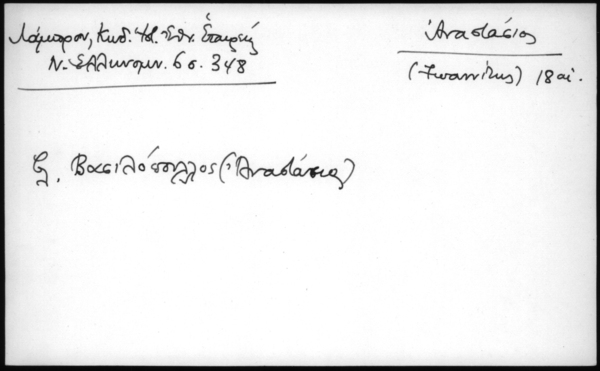 Λάμπρου, Κωδ. Ἱστ. Ἐθν. Ἑταιρείας
Ν. Ἑλληνομν. 6 σ. 348
Ἀναστάσιος
(Ἰωαννίτης) 18 αἰ.
Βασιλόπουλος (Ἀναστάσιος)